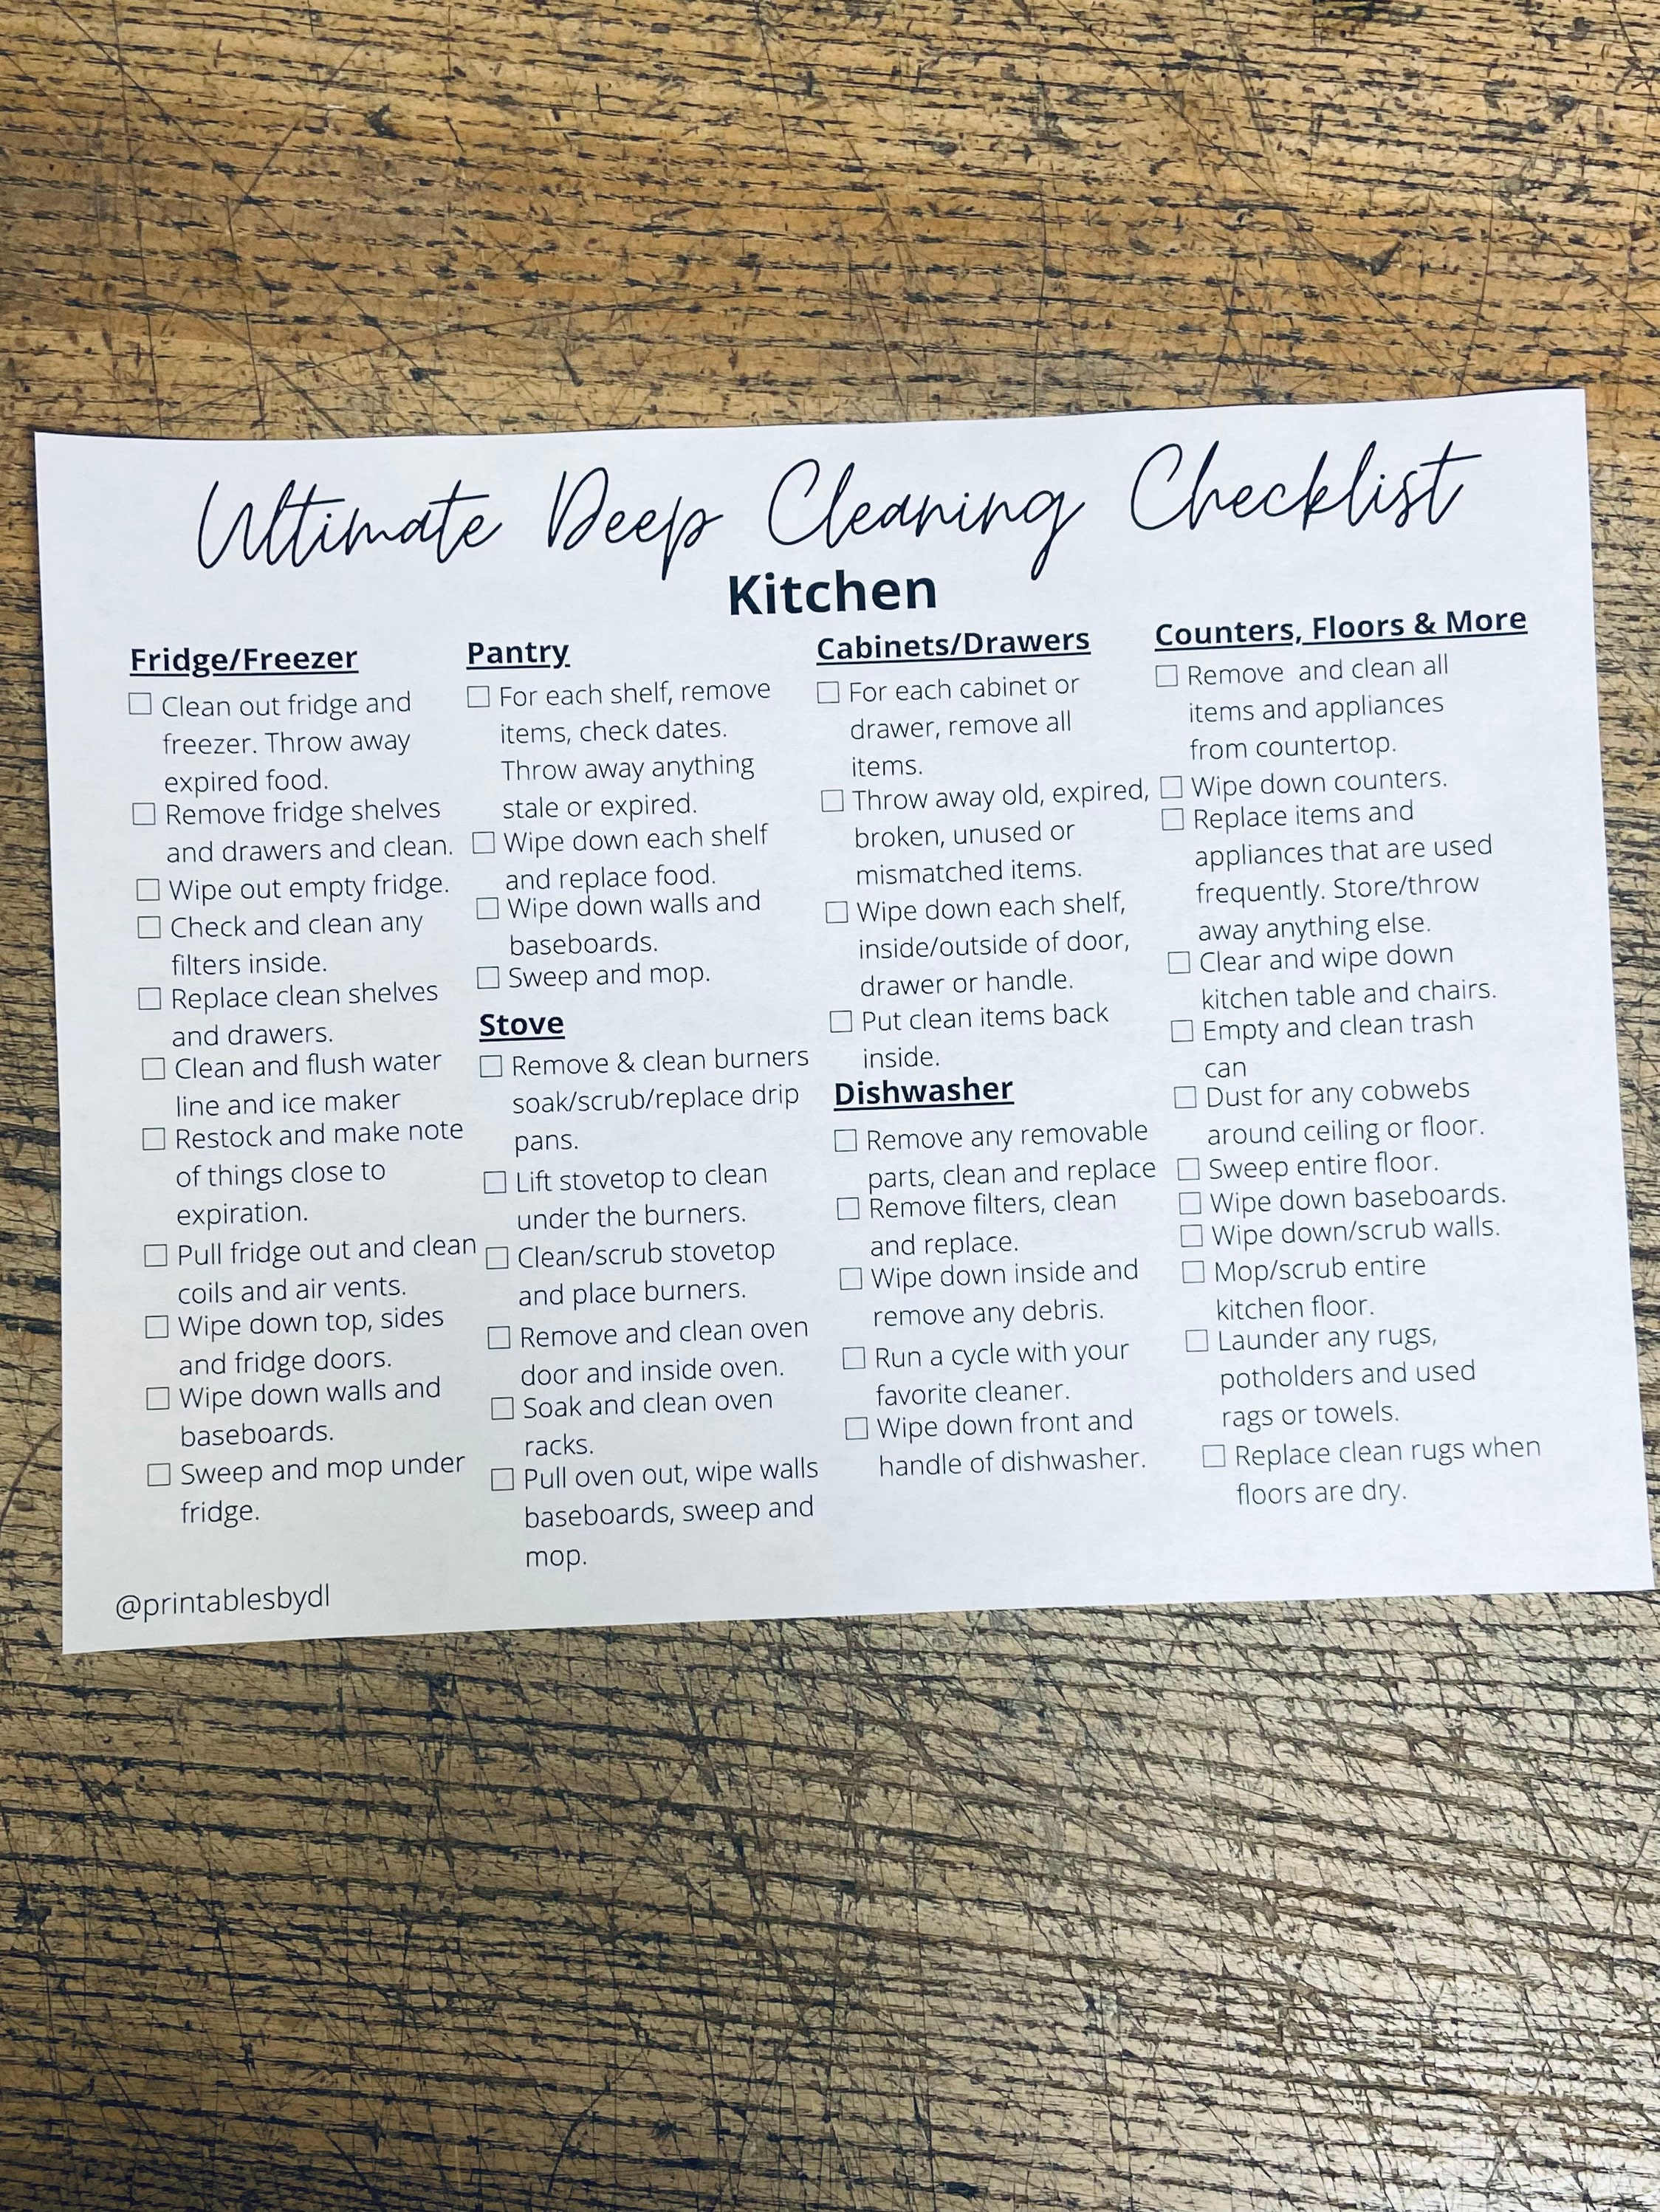 Ultimate Deep Cleaning Checklist
Kitchen
Fridge/Freezer
Clean out fridge and
freezer. Throw away
expired food.
Remove fridge shelves
and drawers and clean.
Wipe out empty fridge.
Check and clean any
filters inside.
Replace clean shelves
and drawers.
Clean and flush water
line and ice maker
Restock and make note
of things close to
expiration.
Pull fridge out and clean
coils and air vents.
Wipe down top, sides
and fridge doors.
Wipe down walls and
baseboards.
Sweep and mop under
fridge.
Pantry
For each shelf, remove
items, check dates.
Throw away anything
stale or expired.
Wipe down each shelf
and replace food.
Wipe down walls and
baseboards.
Sweep and mop.
Stove
Remove & clean burners
soak/scrub/replace drip
pans.
Lift stovetop to clean
under the burners.
Clean/scrub stovetop
and place burners.
Remove and clean oven
door and inside oven.
Soak and clean oven
racks.
Pull oven out, wipe walls
baseboards, sweep and
mop.
Cabinets/Drawers
For each cabinet or
drawer, remove all
items.
Throw away old, expired,
broken, unused or
mismatched items.
Wipe down each shelf,
inside/outside of door,
drawer or handle.
Put clean items back
inside.
Dishwasher
Remove any removable
parts, clean and replace
Remove filters, clean
and replace.
Wipe down inside and
remove any debris.
Run a cycle with your
favorite cleaner.
Wipe down front and
handle of dishwasher.
Counters, Floors & More
Remove  and clean all
items and appliances
from countertop.
Wipe down counters.
Replace items and
appliances that are used
frequently. Store/throw
away anything else.
Clear and wipe down
kitchen table and chairs.
Empty and clean trash
can
Dust for any cobwebs
around ceiling or floor.
Sweep entire floor.
Wipe down baseboards.
Wipe down/scrub walls.
Mop/scrub entire
kitchen floor.
Launder any rugs,
potholders and used
rags or towels.
Replace clean rugs when
floors are dry.
@printablesbydl